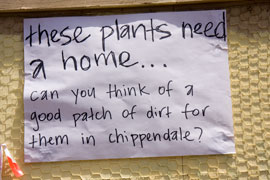 these plants need
a home...
can you think of a
good patch of dirt for
them in chippendale?